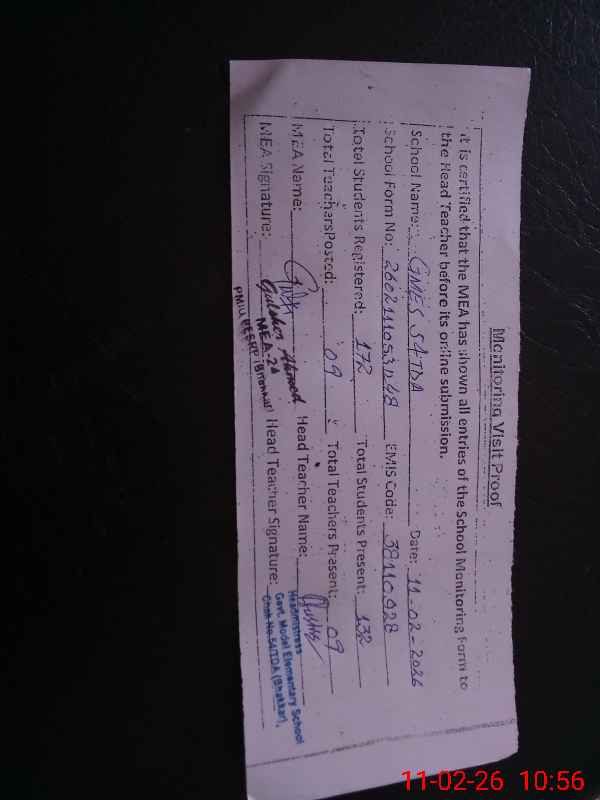 Monitoring Visit Proof
It is certified that the MEA has shown all entries of the School Monitoring Form to
the Head Teacher before its online submission.
School Name: GMES 54TDA Date: 11-02-2026
School Form No: EMIS Code: 38110028
Total Students Registered: 172 Total Students Present: 132
Total Teachers Posted: 09 Total Teachers Present: 09
MEA Name: Head Teacher Name:
MEA Signature: Head Teacher Signature:
Ahmed
MEA-24
PMIU PESRP (Bhakkar)
Headmistress
Govt. Model Elementary School
Chak No.54/TDA (Bhakkar).
11-02-26 10:56